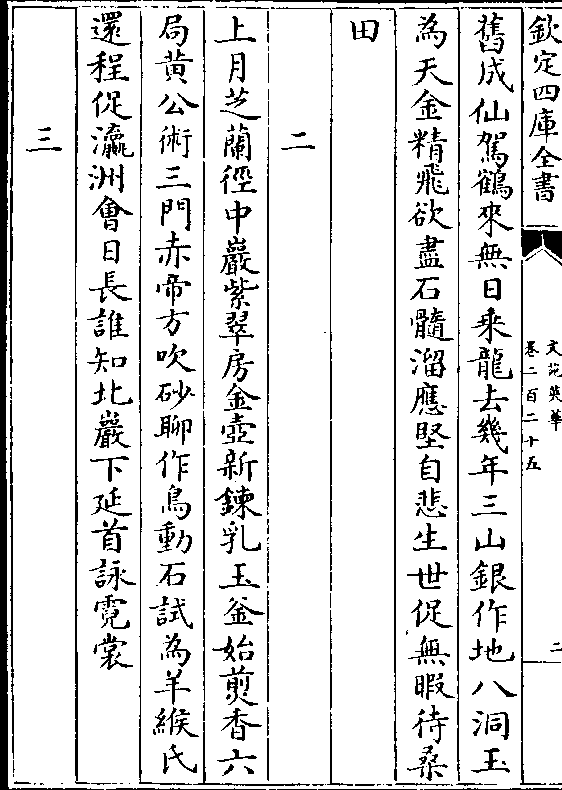 欽定四庫全書
文苑英華
卷二百二十五
二
舊成仙駕鶴來無日乗龍去幾年三山銀作地八洞玉
為天金精飛欲盡石髓溜應堅自悲生世促無暇待桑
田
二
上月芝蘭徑中巖紫翠房金壺新鍊乳玉釜始煎香六
局黄公術三門赤帝方吹砂聊作鳥動石試為羊緱氏
還程促瀛洲會日長誰知北巖下延首詠霓裳
三